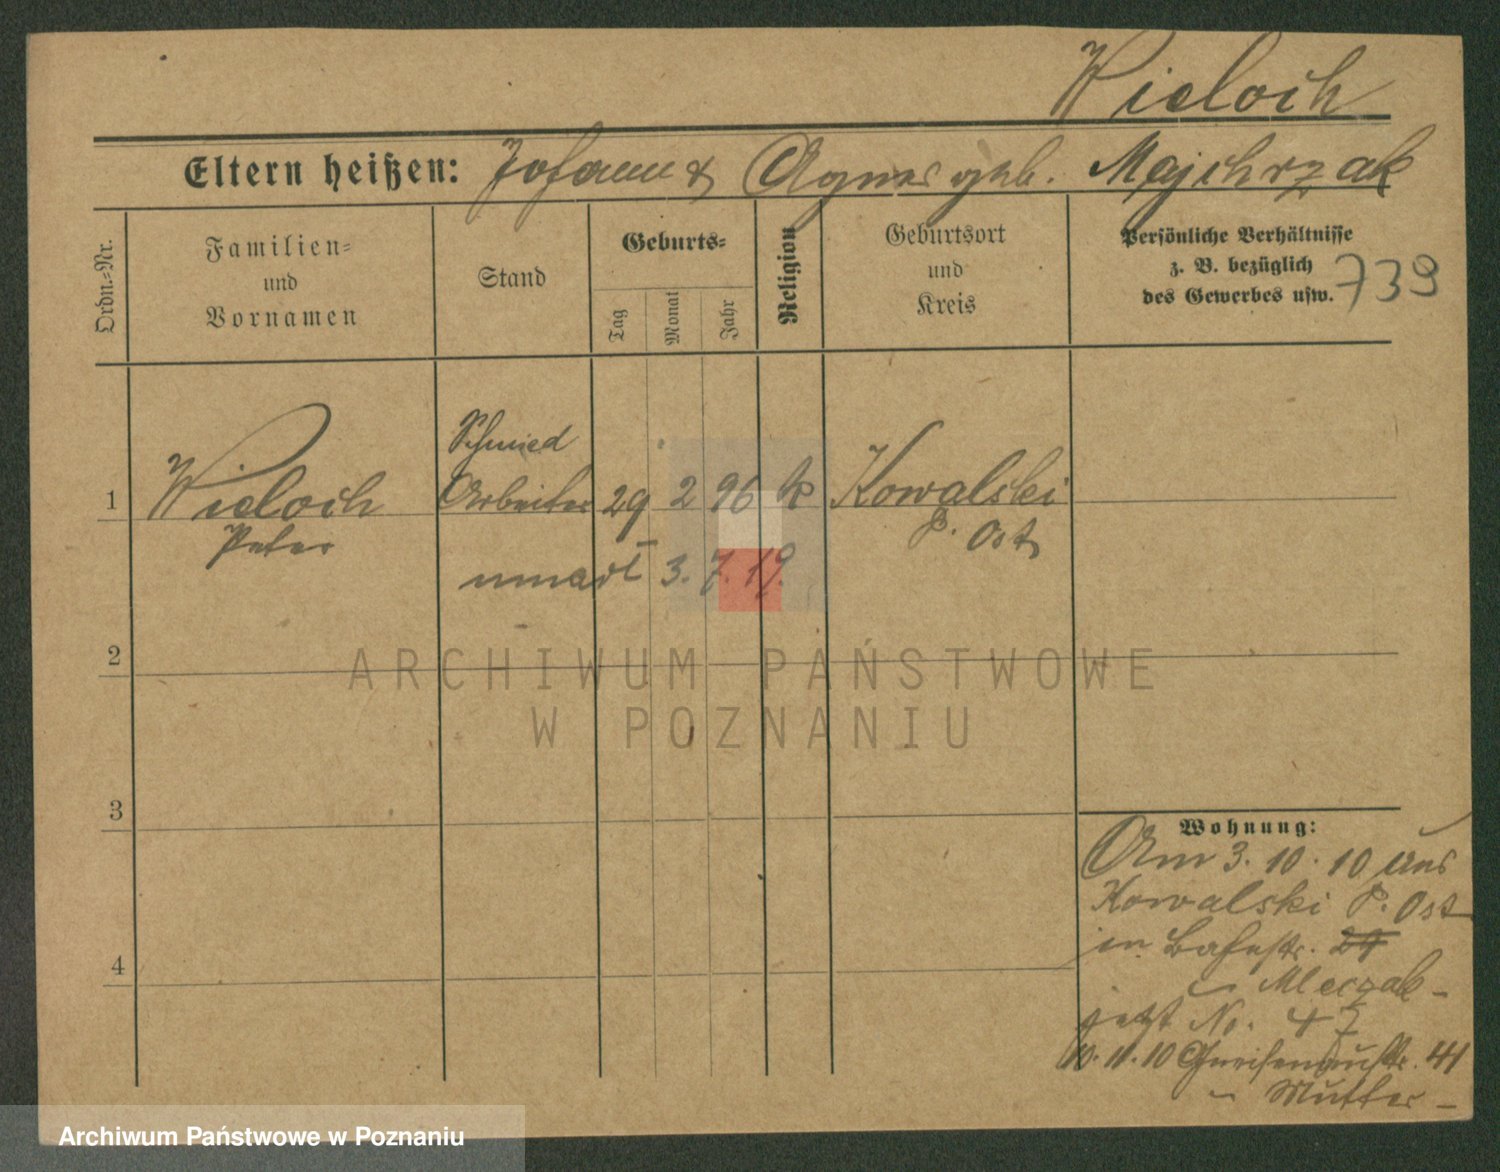 Wieloch
Eltern heißen: Johann & Agnes geb. Majchrzak
Ordn.=Nr.
Familien=
und
Vornamen
Stand
Geburts=
Tag
Monat
Jahr
Religion
Geburtsort
und
Kreis
Persönliche Verhältnisse
z. B. bezüglich
des Gewerbes usw.
739
Schmied
1 Wieloch Arbeiter 29 2 96 k Kowalski
Peter P. Ost
3. 7. 19.
2
ARCHIWUM PAŃSTWOWE
W POZNANIU
3
Wohnung:
Am 3. 10. 10 aus
Kowalski P. Ost
in Bahnstr. 27
Mleczak -
jetzt No. 47
10. 11. 10 Gneisenaustr. 41
Mutter -
4
Archiwum Państwowe w Poznaniu